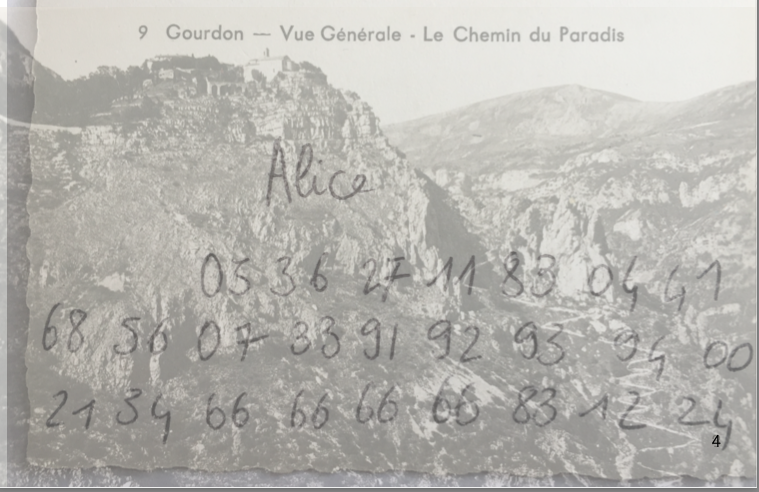 9 Gourdon — Vue Générale - Le Chemin du Paradis
Alice
05 36 27 11 83 04 41
68 56 07 33 91 92 93 94 00
21 34 66 66 66 66 83 12 24
4